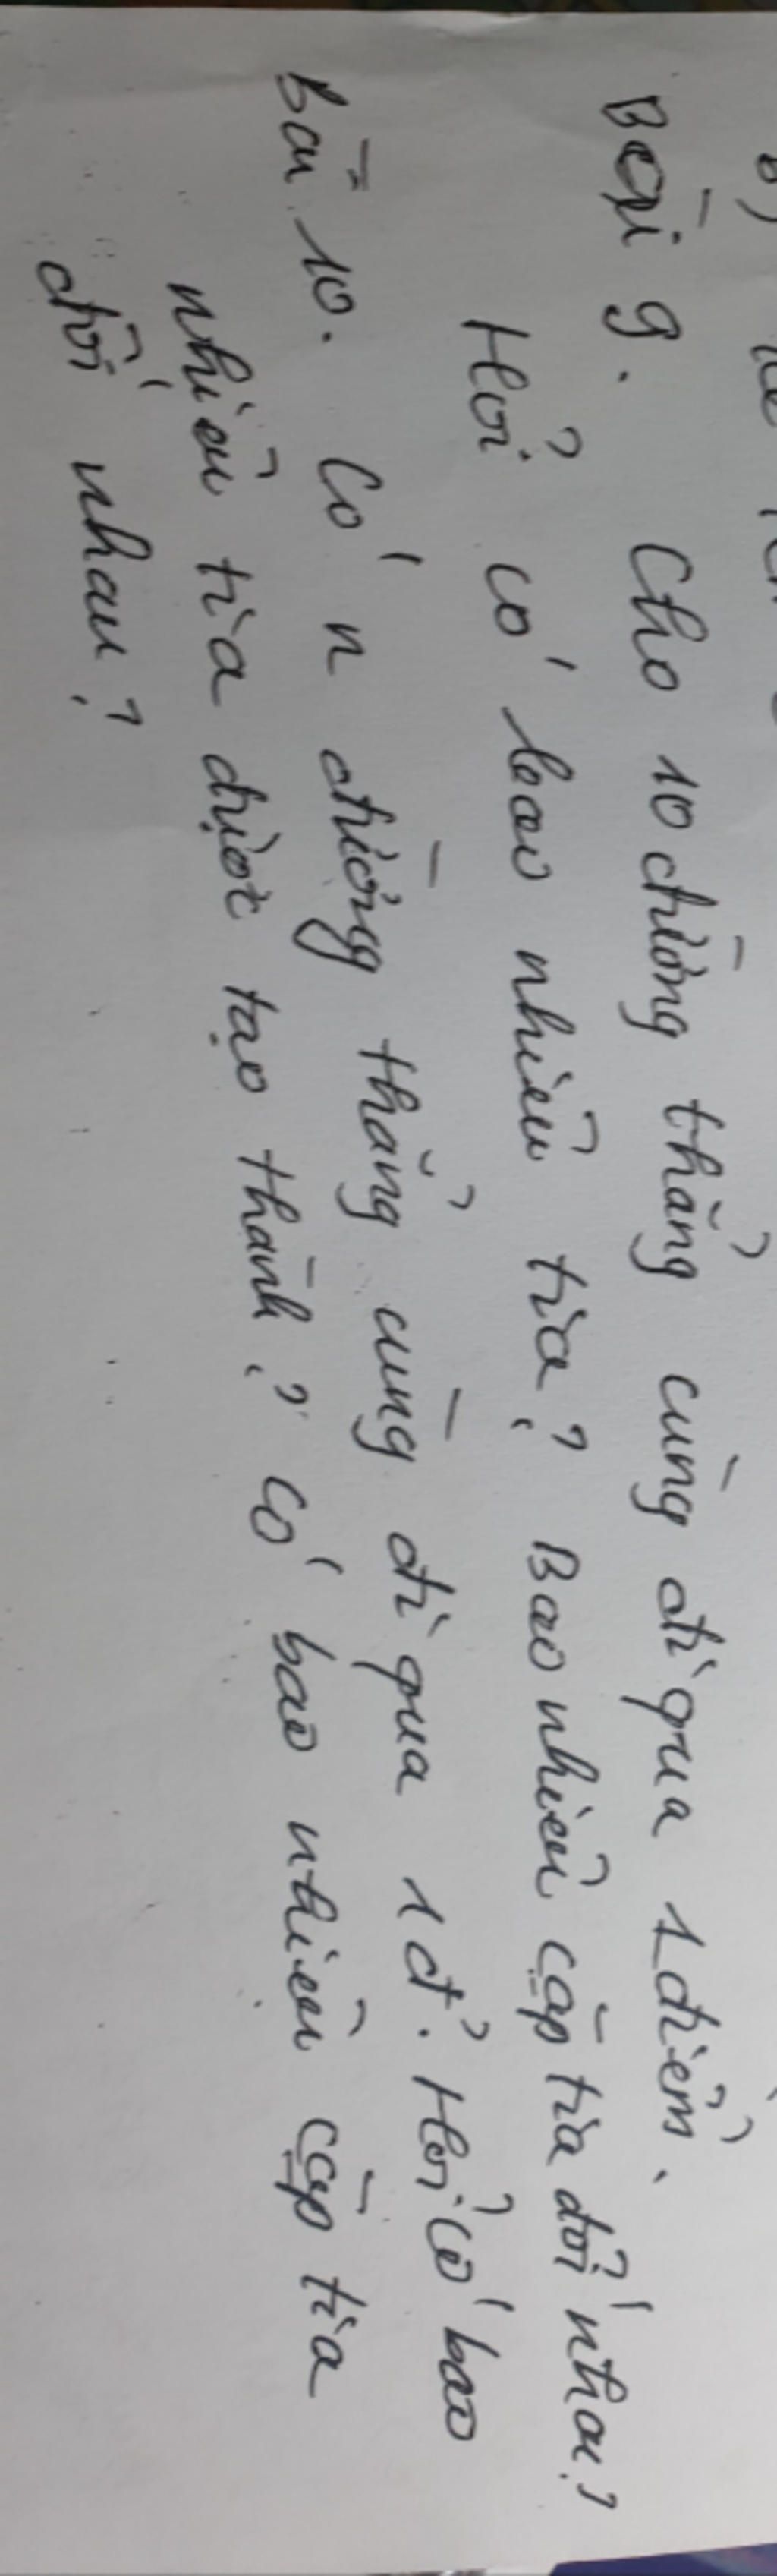 Bài 9. Cho 10 đường thẳng cùng đi qua 1 điểm.
Hỏi có bao nhiêu tia? Bao nhiêu cặp tia đối nhau?
Bài 10. Có n đường thẳng cùng đi qua 1 đ'. Hỏi có bao
nhiêu tia được tạo thành? có bao nhiêu cặp tia
đối nhau?